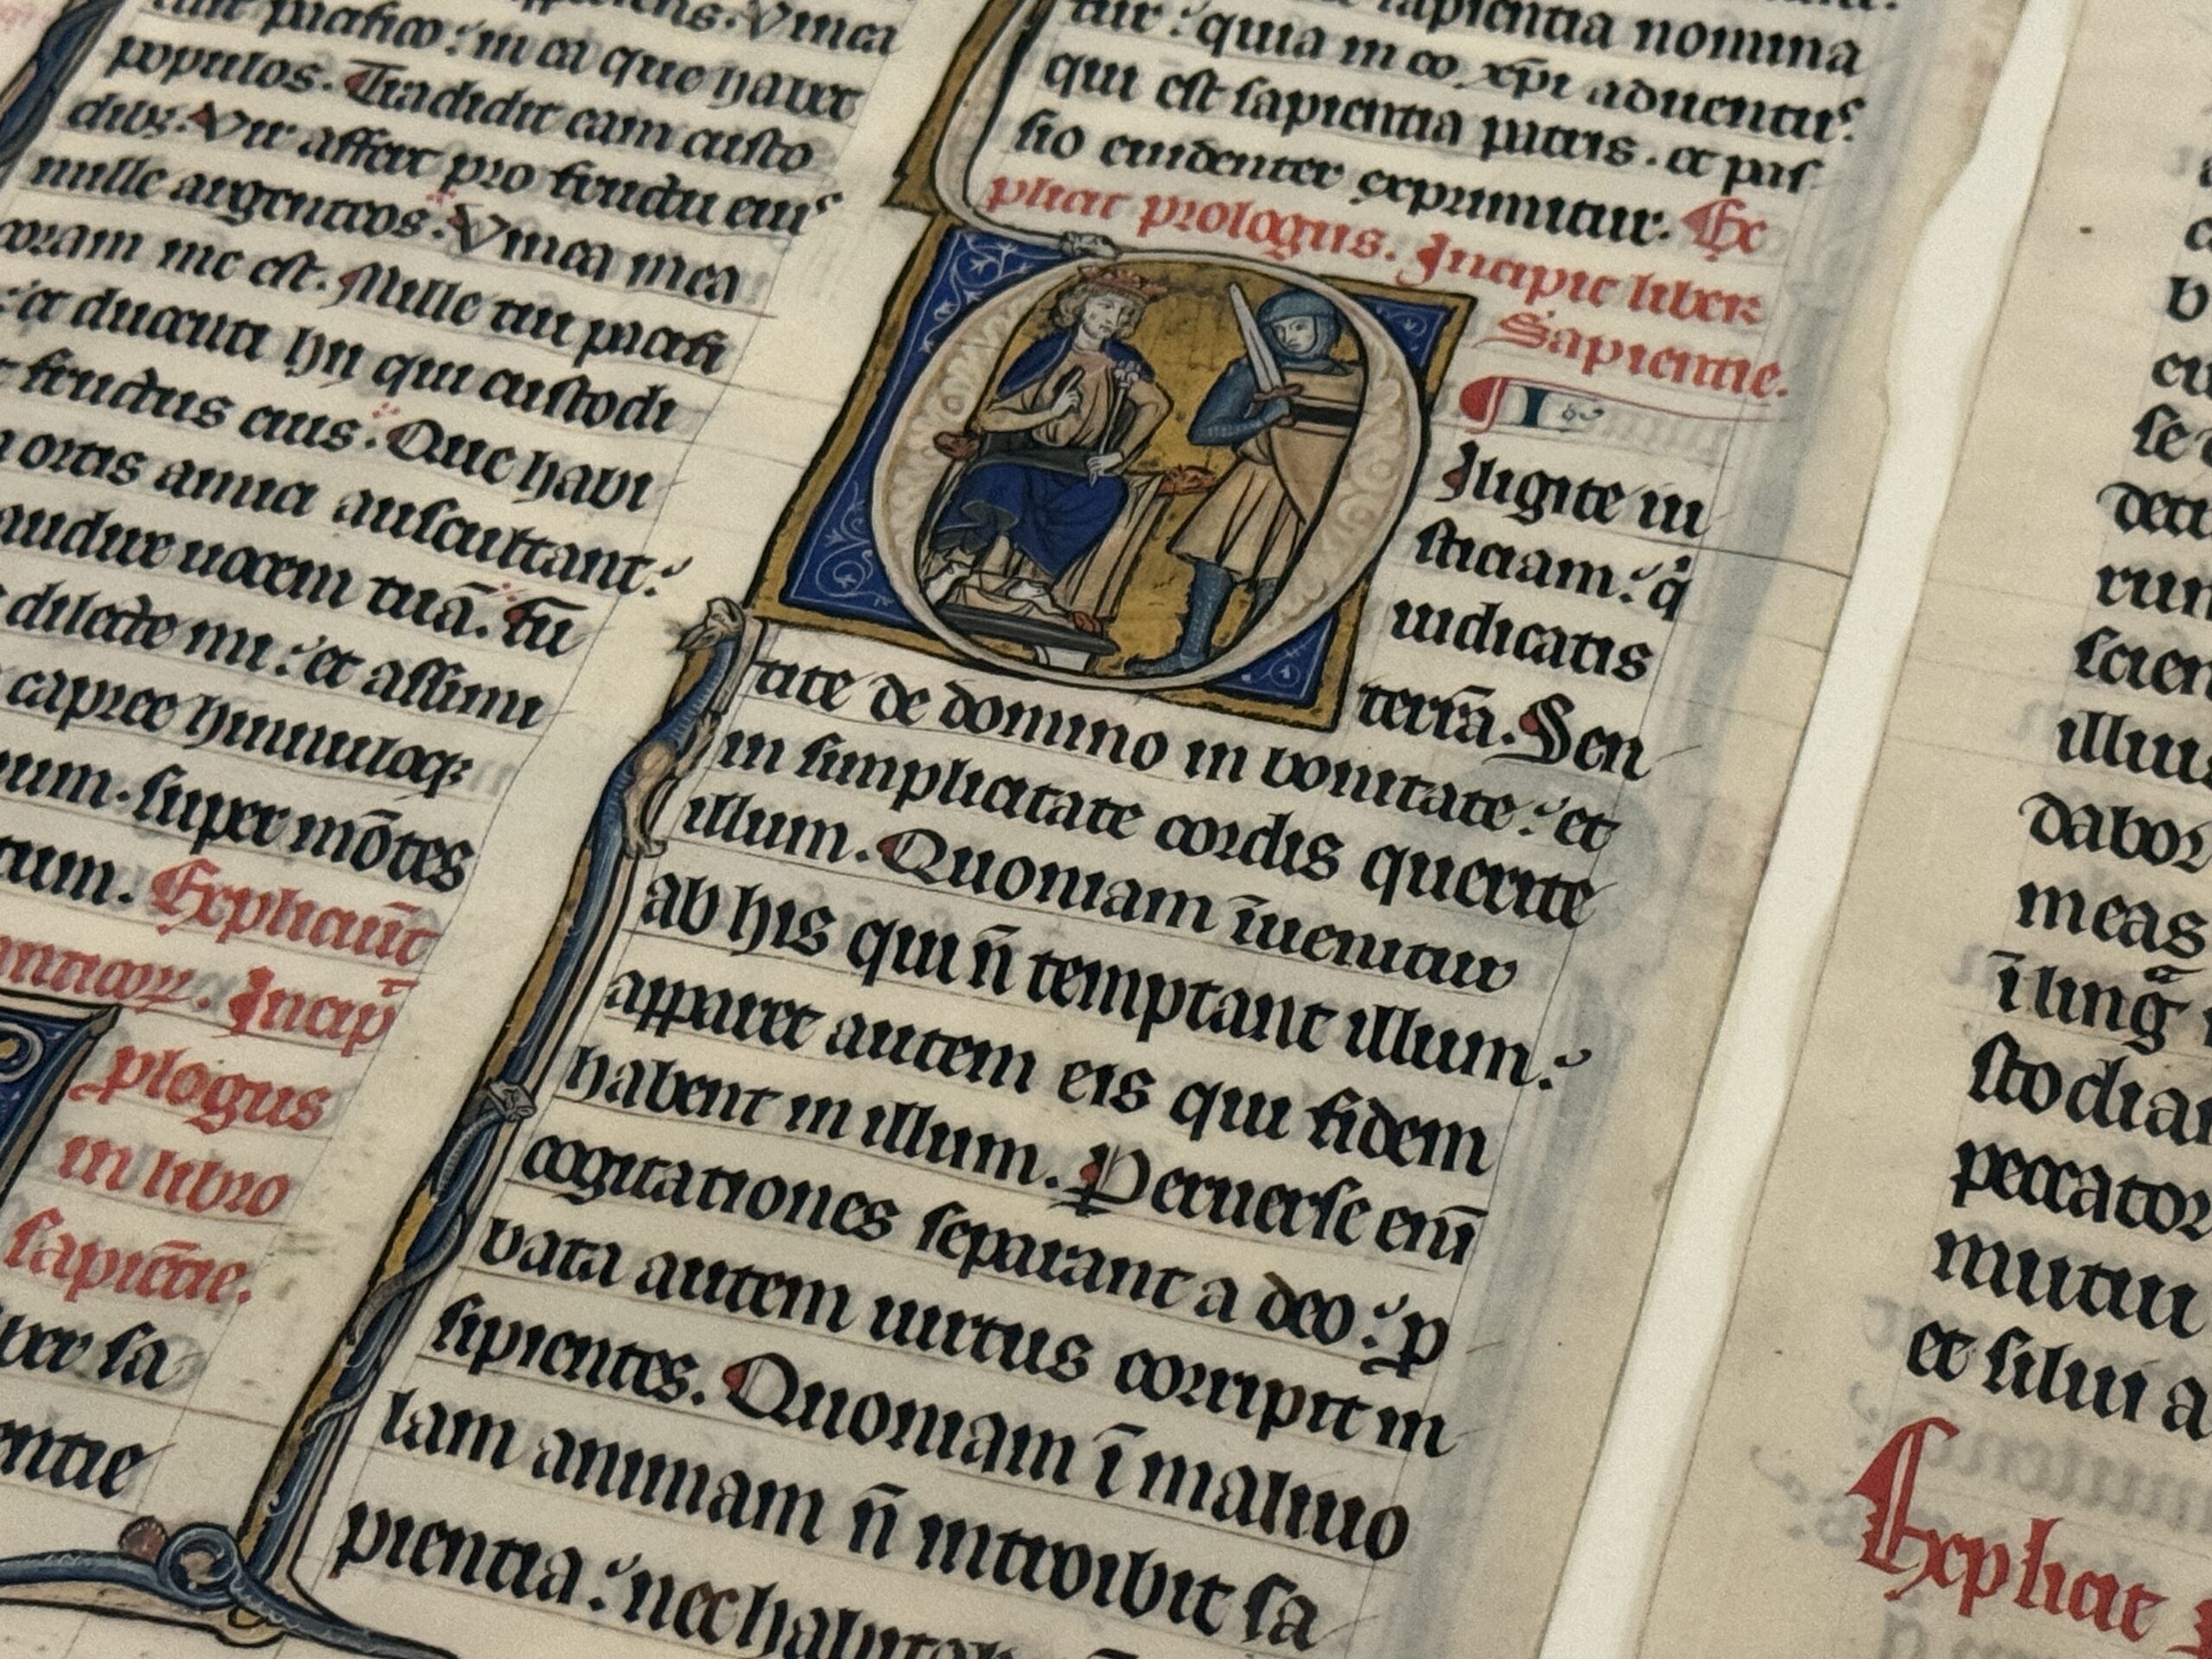 Vinea
pacifico: in ea que habet
populos. Tradidit eam custo
dib;. Vir affert pro fructu eiꝰ
mille argenteos. Vinea mea
coram me est. Mille tui pacifi
et ducenti hii qui custodi
fructus eius. Que habi
ortis amici auscultant:
audire uocem tuā. Fu
dilecte mi: et assimi
capree hinnuloq;
super mōtes
Expliciūt
Incip̄
ꝓlogus
in libro
sapiētie.
sa
sapientia nomina
tur: quia in eo xp̄i aduentuꝰ
qui est sapientia patris. et pas
sio euidenter exprimitur. Ex
plicit prologus. Incipit liber
Sapientie.
I
Iligite iu
sticiam: q̇
iudicatis
terrā. Sen
tite de domino in bonitate: et
in simplicitate cordis querite
illum. Quoniam īuenitur
ab his qui n̄ temptant illum:
apparet autem eis qui fidem
habent in illum. Peruerse enī
cogitationes separant a deo: ꝓ
bata autem uirtus corripit in
sipientes. Quoniam ī maliuo
lam animam n̄ introibit sa
pientia: nec
se
scien
illiu
dabo
meas
ī ling
stodia
peccator
mutu
et silui a
Explicit